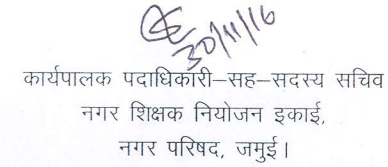 30/11/16
कार्यपालक पदाधिकारी–सह–सदस्य सचिव
नगर शिक्षक नियोजन इकाई,
नगर परिषद, जमुई।